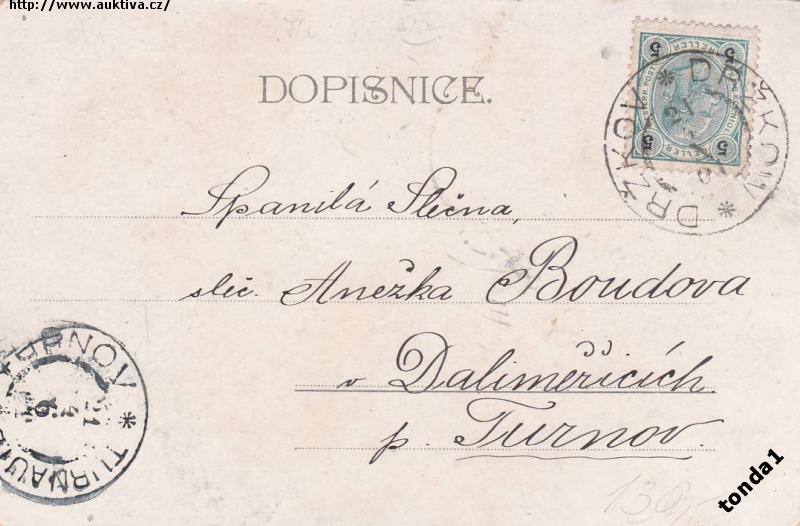 http://www.auktiva.cz/
DOPISNICE.
5 5
HELLER
5 5
DRŽKOW * DRŽKOV *
21
01
Spanilá Slečna,
sleč. Anežka Boudova
v Daliměřicích.
p. Turnov.
TURNOV * TURNAU
21
130,-
tonda1